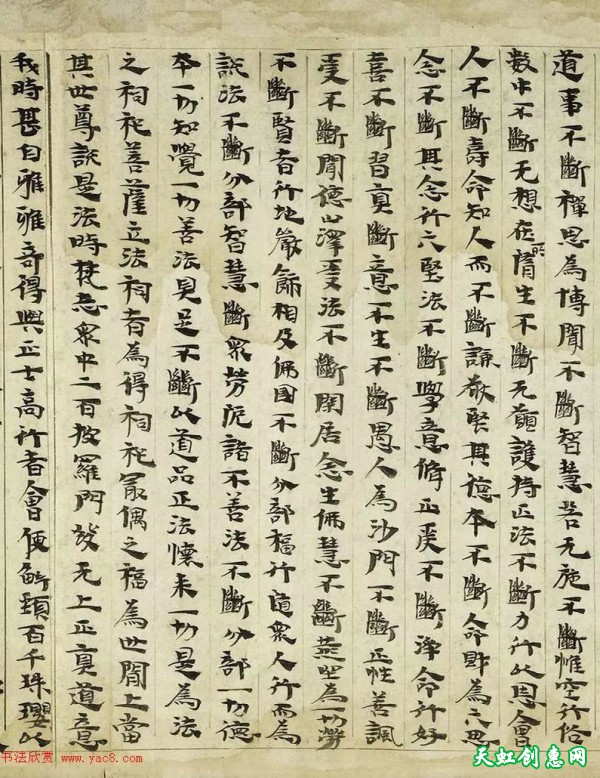 道事不斷禪思為博聞不斷智慧若无施不斷惟空行俗
數中不斷无想在所隋生不斷无願護持正法不斷力行以恩會
人不斷壽命知人而不斷謙敬堅其德本不斷命財為六思
念不斷其念行六堅法不斷學意脩正戻不斷淨命行好
喜不斷習真斷意不生不斷愚人為沙門不斷正性善諷
受不斷聞德山澤受法不斷閑居念生佛慧不斷燕坐為一切勞
不斷賢者行地嚴飾相及佛國不斷分部福行道衆人行而為
説法不斷分部智慧斷衆勞況諸不善法不斷分部一切德
本一切知覺一切善法具足不斷以道品正法懷来一切是為法
之祠祀菩薩立法祠者為得祠祀冣偶之福為世閒上當
其世尊説是法時梵志衆中二百披羅門發无上正真道意
我時甚自雅雅奇得與正士高行者會便解頸百千珠瓔以
书法欣赏 www.yac8.com
天虹创意网